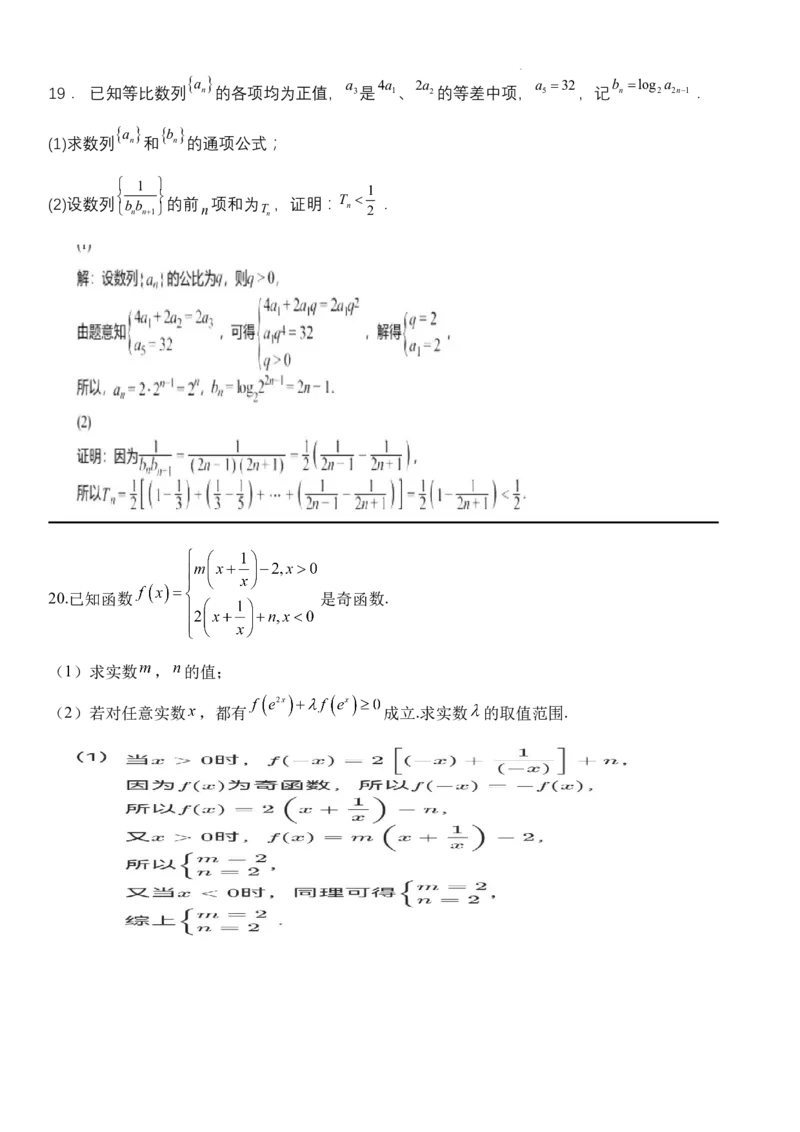 19． 已知等比数列 {aₙ} 的各项均为正值， a₃ 是 4a₁ 、 2a₂ 的等差中项， a₅ = 32 ，记 bₙ = log₂ a₂ₙ₋₁ ．
(1)求数列 {aₙ} 和 {bₙ} 的通项公式；
(2)设数列 {1/(bₙbₙ₊₁)} 的前 n 项和为 Tₙ ，证明：Tₙ < 1/2 ．
(1)
解：设数列{aₙ}的公比为q，则q>0，
由题意知{4a₁+2a₂=2a₃, a₅=32 ，可得{4a₁+2a₁q=2a₁q², a₁q⁴=32, q>0 ，解得{q=2, a₁=2 ，
所以，aₙ=2·2ⁿ⁻¹=2ⁿ，bₙ=log₂2²ⁿ⁻¹=2n−1.
(2)
证明：因为1/(bₙbₙ₋₁)=1/((2n−1)(2n+1))=1/2(1/(2n−1)−1/(2n+1))，
所以Tₙ=1/2[(1−1/3)+(1/3−1/5)+⋯+(1/(2n−1)−1/(2n+1))]=1/2(1−1/(2n+1))<1/2.
20.已知函数 f(x)={m(x+1/x)−2, x>0; 2(x+1/x)+n, x<0 是奇函数.
（1）求实数 m ，n 的值；
（2）若对任意实数 x ，都有 f(e²ˣ)+λf(eˣ)≥0 成立.求实数 λ 的取值范围.
（1） 当x > 0时，f(−x) = 2[(−x) + 1/(−x)] + n，
因为f(x)为奇函数，所以f(−x) = −f(x)，
所以f(x) = 2(x + 1/x) − n，
又x > 0时，f(x) = m(x + 1/x) − 2，
所以{m = 2, n = 2，
又当x < 0时，同理可得{m = 2, n = 2，
综上{m = 2, n = 2 .